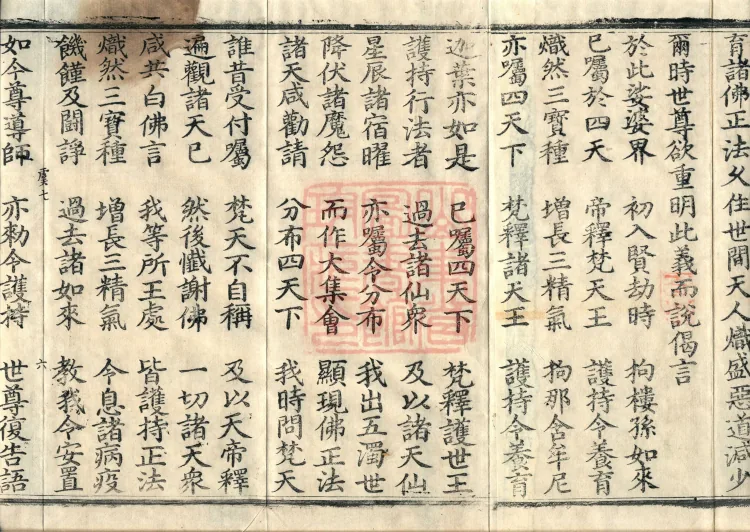 育諸佛正法久住世間天人熾盛惡道減少
爾時世尊欲重明此義而說偈言
於此娑婆界 初入賢劫時 拘樓孫如來
已囑於四天 帝釋梵天王 護持令養育
熾然三寶種 增長三精氣 拘那含牟尼
亦囑四天下 梵釋諸天王 護持令養育
迦葉亦如是 已囑四天下 梵釋護世王
護持行法者 過去諸仙衆 及以諸天仙
星辰諸宿曜 亦囑令分布 我出五濁世
降伏諸魔怨 而作大集會 顯現佛正法
諸天咸勸請 分布四天下 我時問梵天
誰昔受付囑 梵天不自稱 及以天帝釋
遍觀諸天已 然後懺謝佛 一切諸天衆
咸共白佛言 我等所王處 皆護持正法
熾然三寶種 增長三精氣 令息諸病疫
饑饉及鬪諍 過去諸如來 教我令安置
虞七 六
如今尊導師 亦勑令護持 世尊復告語